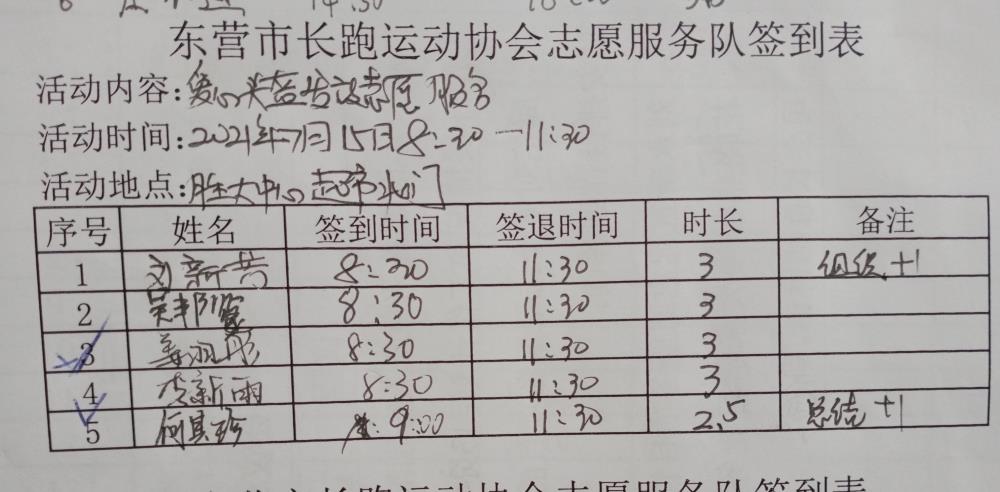 14:30
东营市长跑运动协会志愿服务队签到表
活动内容:爱心 志愿服务
活动时间:2021年7月15日8:30—11:30
活动地点:胜大中心超市北门
序号 姓名 签到时间 签退时间 时长 备注
1 刘新 8:30 11:30 3 组织+1
2 吴 8:30 11:30 3
3 姜 8:30 11:30 3
4 李新雨 8:30 11:30 3
5 何 9:00 11:30 2.5 总结+1
长跑运动协会志愿服务队签到表